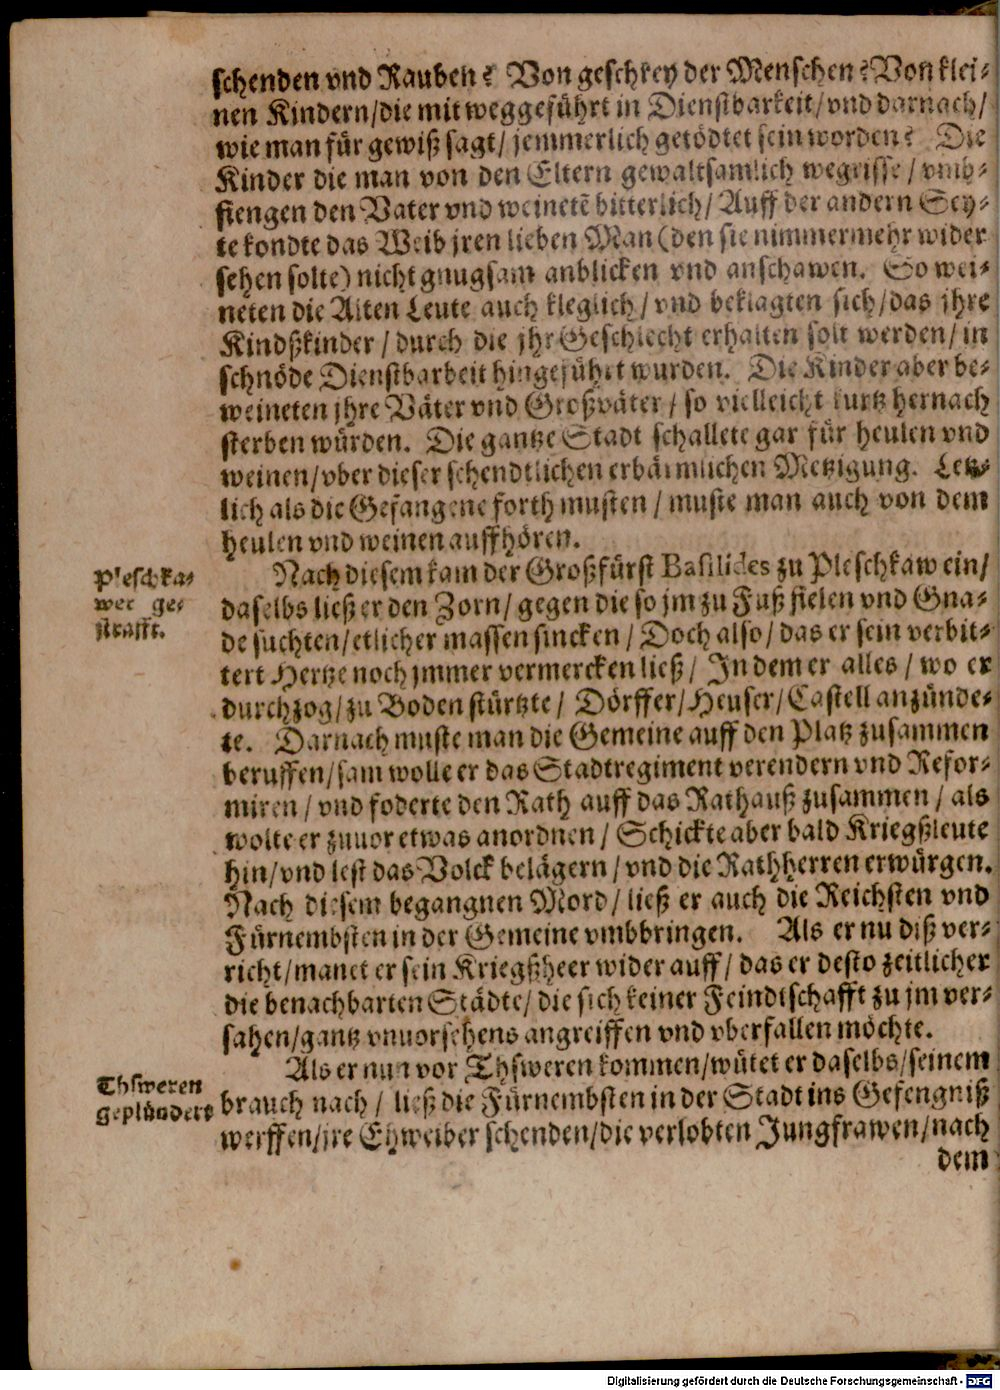 schenden vnd Rauben? Von geschrey der Menschen? Von klei-
nen Kindern/die mit weggeführt in Dienstbarkeit/vnd darnach/
wie man für gewiß sagt/jemmerlich getödtet sein worden? Die
Kinder die man von den Eltern gewaltsamlich wegrisse/vmb-
fiengen den Vater vnd weinetē bitterlich/Auff der andern Sey-
te kondte das Weib jren lieben Man(den sie nimmermehr wider
sehen solte)nicht gnugsam anblicken vnd anschawen. So wei-
neten die Alten Leute auch kleglich/vnd beklagten sich/das jhre
Kindßkinder/durch die jhr Geschlecht erhalten solt werden/in
schnöde Dienstbarbeit hingeführt wurden. Die Kinder aber be-
weineten jhre Väter vnd Großväter/so vielleicht kurtz hernach
sterben würden. Die gantze Stadt schallete gar für heulen vnd
weinen/vber dieser schendtlichen erbärmlichen Metzigung. Letz-
lich als die Gefangene forth musten/muste man auch von dem
heulen vnd weinen auffhören.
Pleschka-
wer ge-
strafft.
Nach diesem kam der Großfürst Basilides zu Pleschkaw ein/
daselbs ließ er den Zorn/gegen die so jm zu Fuß fielen vnd Gna-
de suchten/etlicher massen sincken/Doch also/das er sein verbit-
tert Hertze noch jmmer vermercken ließ/In dem er alles/wo er
durchzog/zu Boden stürtzte/Dörffer/Heuser/Castell anzünde-
te. Darnach muste man die Gemeine auff den Platz zusammen
beruffen/sam wolle er das Stadtregiment verendern vnd Refor-
miren/vnd foderte den Rath auff das Rathauß zusammen/als
wolte er zuuor etwas anordnen/Schickte aber bald Kriegßleute
hin/vnd lest das Volck belägern/vnd die Rathherren erwürgen.
Nach diesem begangnen Mord/ließ er auch die Reichsten vnd
Fürnembsten in der Gemeine vmbbringen. Als er nu diß ver-
richt/manet er sein Kriegßheer wider auff/das er desto zeitlicher
die benachbarten Städte/die sich keiner Feindtschafft zu jm ver-
sahen/gantz vnuorsehens angreiffen vnd vberfallen möchte.
Thsweren
geplündert
Als er nun vor Thsweren kommen/wütet er daselbs/seinem
brauch nach/ließ die Fürnembsten in der Stadt ins Gefengniß
werffen/jre Ehweiber schenden/die verlobten Jungfrawen/nach
dem
Digitalisierung gefördert durch die Deutsche Forschungsgemeinschaft - DFG